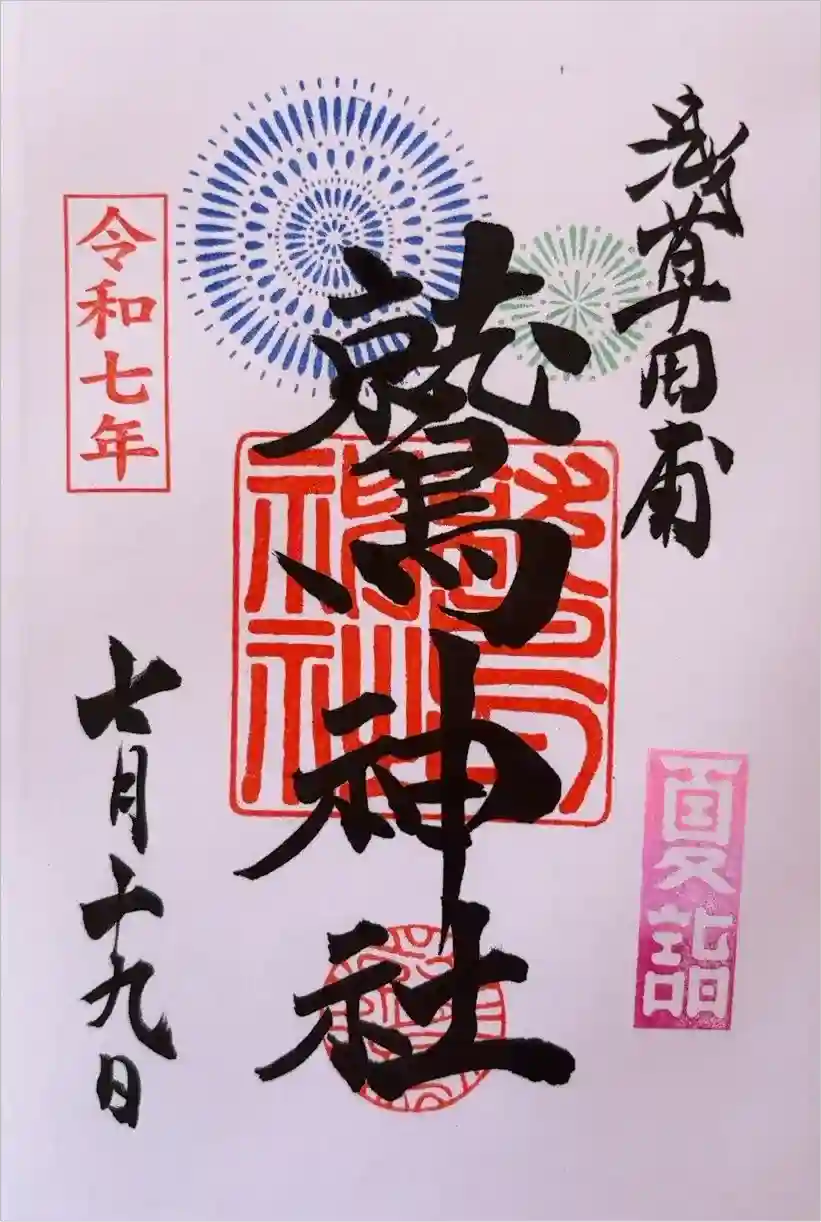 浅草田甫
鷲神社
夏詣
令和七年
七月十九日
鷲神社